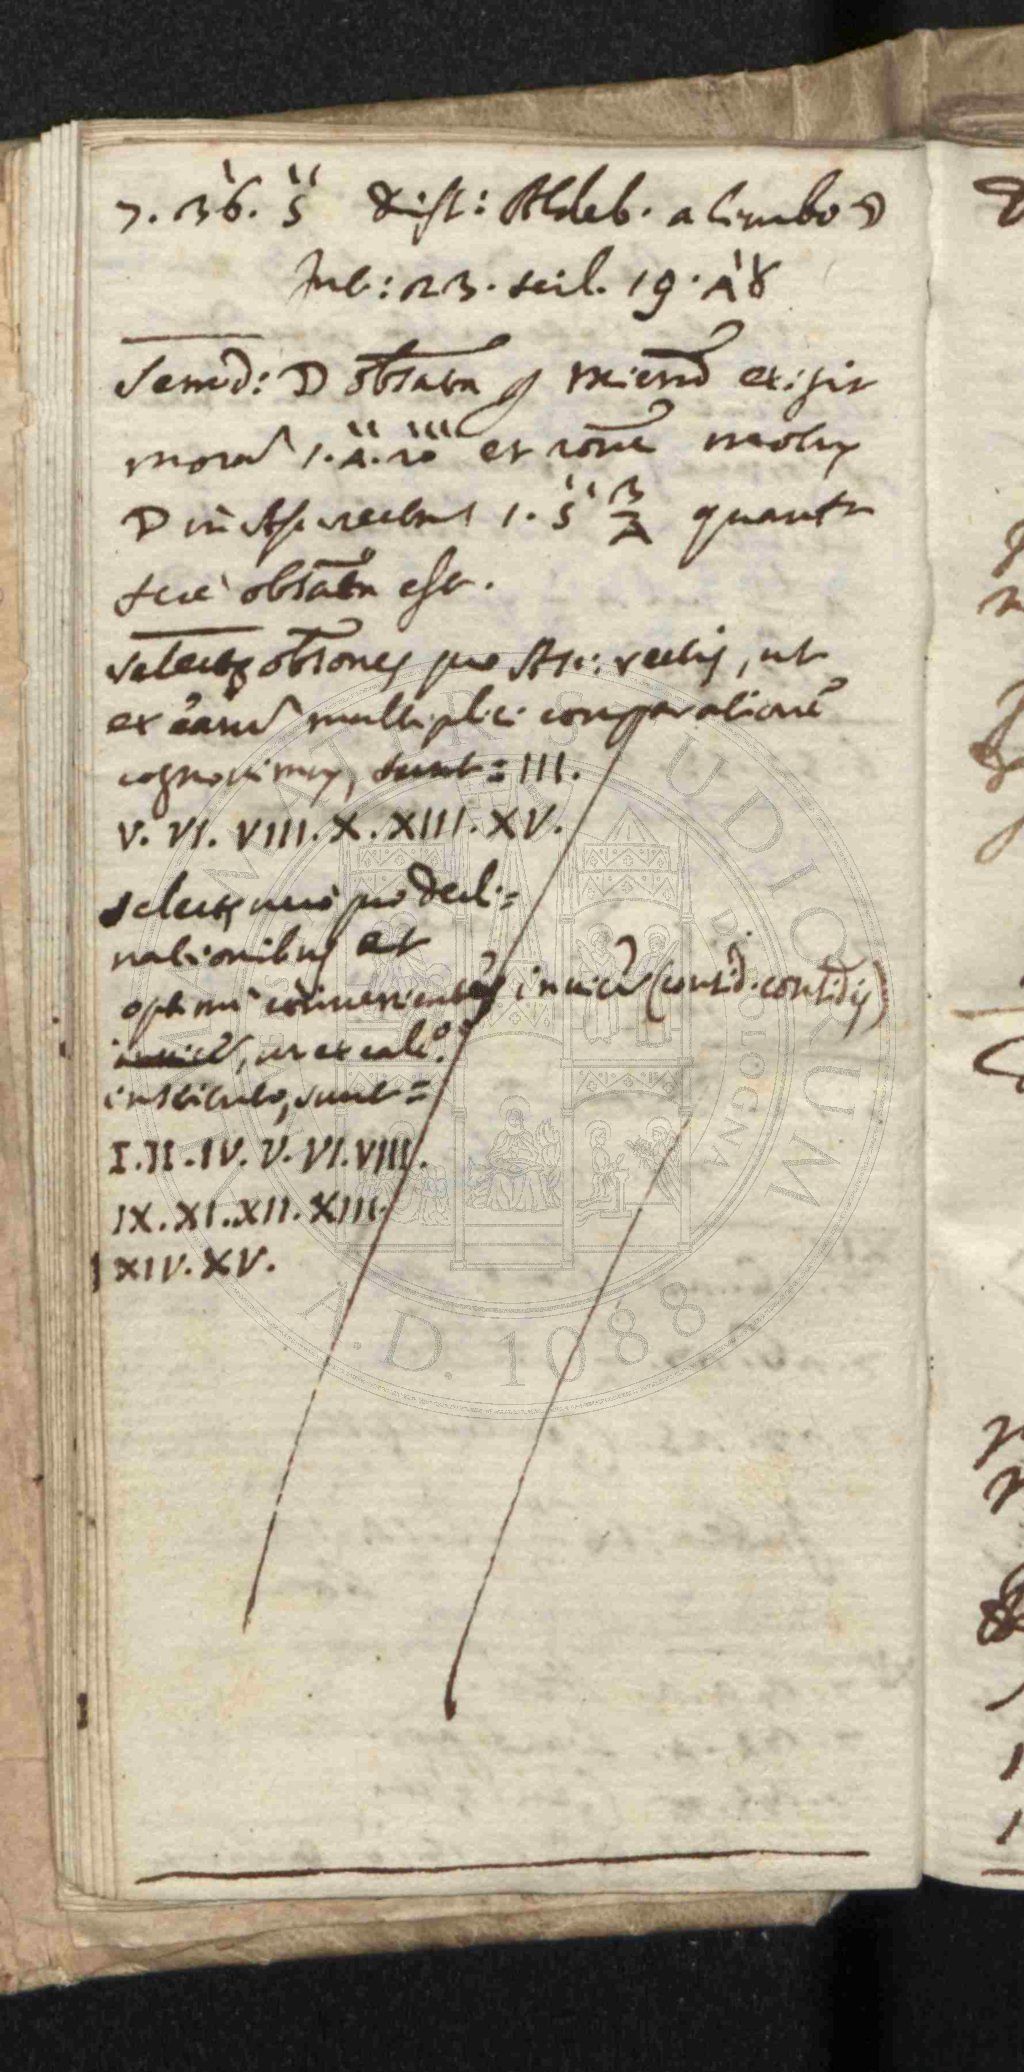 7. 36. 5 dist: Aldeb. a limbo ☽
Jul: 23. scil. 19. 48
Semid: ☽ obsata p micrud exigit
mora 1. 4. 20 et rone motus
☽ in Asc. rectam 1. 5 3/4 quanta
fere obsata est.
Selectę obsones pro Asc: rectis, ut
ex earū multiplici comparatione
cognovimus, sunt = III.
V. VI. VIII. X. XIII. XV.
Selectę vero pro decli=
nationibus et
optime convenientes invicē (consid. considis)
invicē, ut ex calc.o
instituto, sunt =
I. II. IV. V. VI. VIII.
IX. XI. XII. XIII.
XIV. XV.
ALMA MATER STUDIORUM
BOLOGNA
A.D. 1088